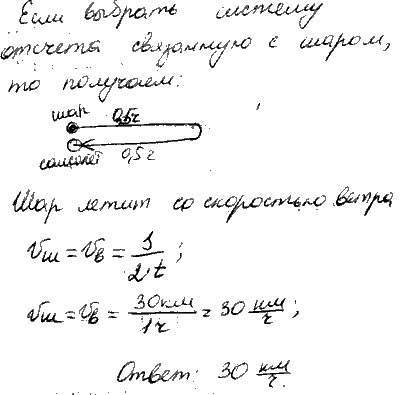 Если выбрать систему
отсчета связанную с шаром,
то получаем:
шар 0,5ч
самолет 0,5ч
Шар летит со скоростью ветра
Vш = Vв = S/2·t ;
Vш = Vв = 30км/1ч = 30 км/ч ;
Ответ: 30 км/ч.